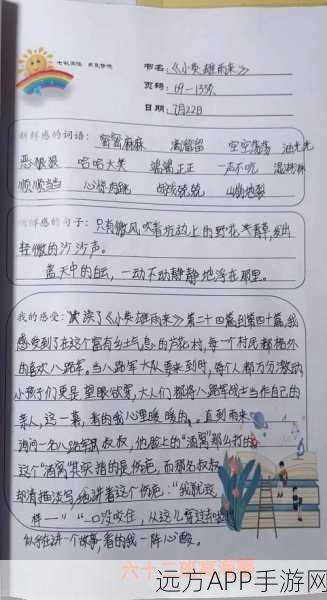 书名:《小英雄雨来》
页码: 109-133页
日期: 7月22日
新鲜感的词语: 密密麻麻 滴溜溜 空空荡荡 油光光
恶狠狠 哈哈大笑 端端正正 一声不吭 湿淋淋
顺顺当当 心惊肉跳 山崩地裂
新鲜感的句子: 只有微风吹着坑边上的野花 青草,发出
轻微的沙沙声。
蓝天中的白云,一动不动静静地浮在那里。
我的感受: 读了《小英雄雨来》第二十四篇到第四十篇,我
感受到了在这个富有乡土气息的芦花村,每一个村民都格外
的喜欢八路军。当八路军大队要来到时,每个人都万分激动,
小孩子们更是望眼欲穿,大人们都将八路军战士当作自己的
亲人,这一幕,看的我心里暖暖的。直到雨来
询问一名八路军 叔叔,他脸上的“酒窝”那么打的
这个“酒窝”其实指的是伤疤。而那名叔叔
却清描淡写,他讲着这个伤疤:“我就这
样一”“一口没咬住,从这儿穿过去
似乎在讲一个故事,看的我一阵心酸。
六十二班
远方APP手游网